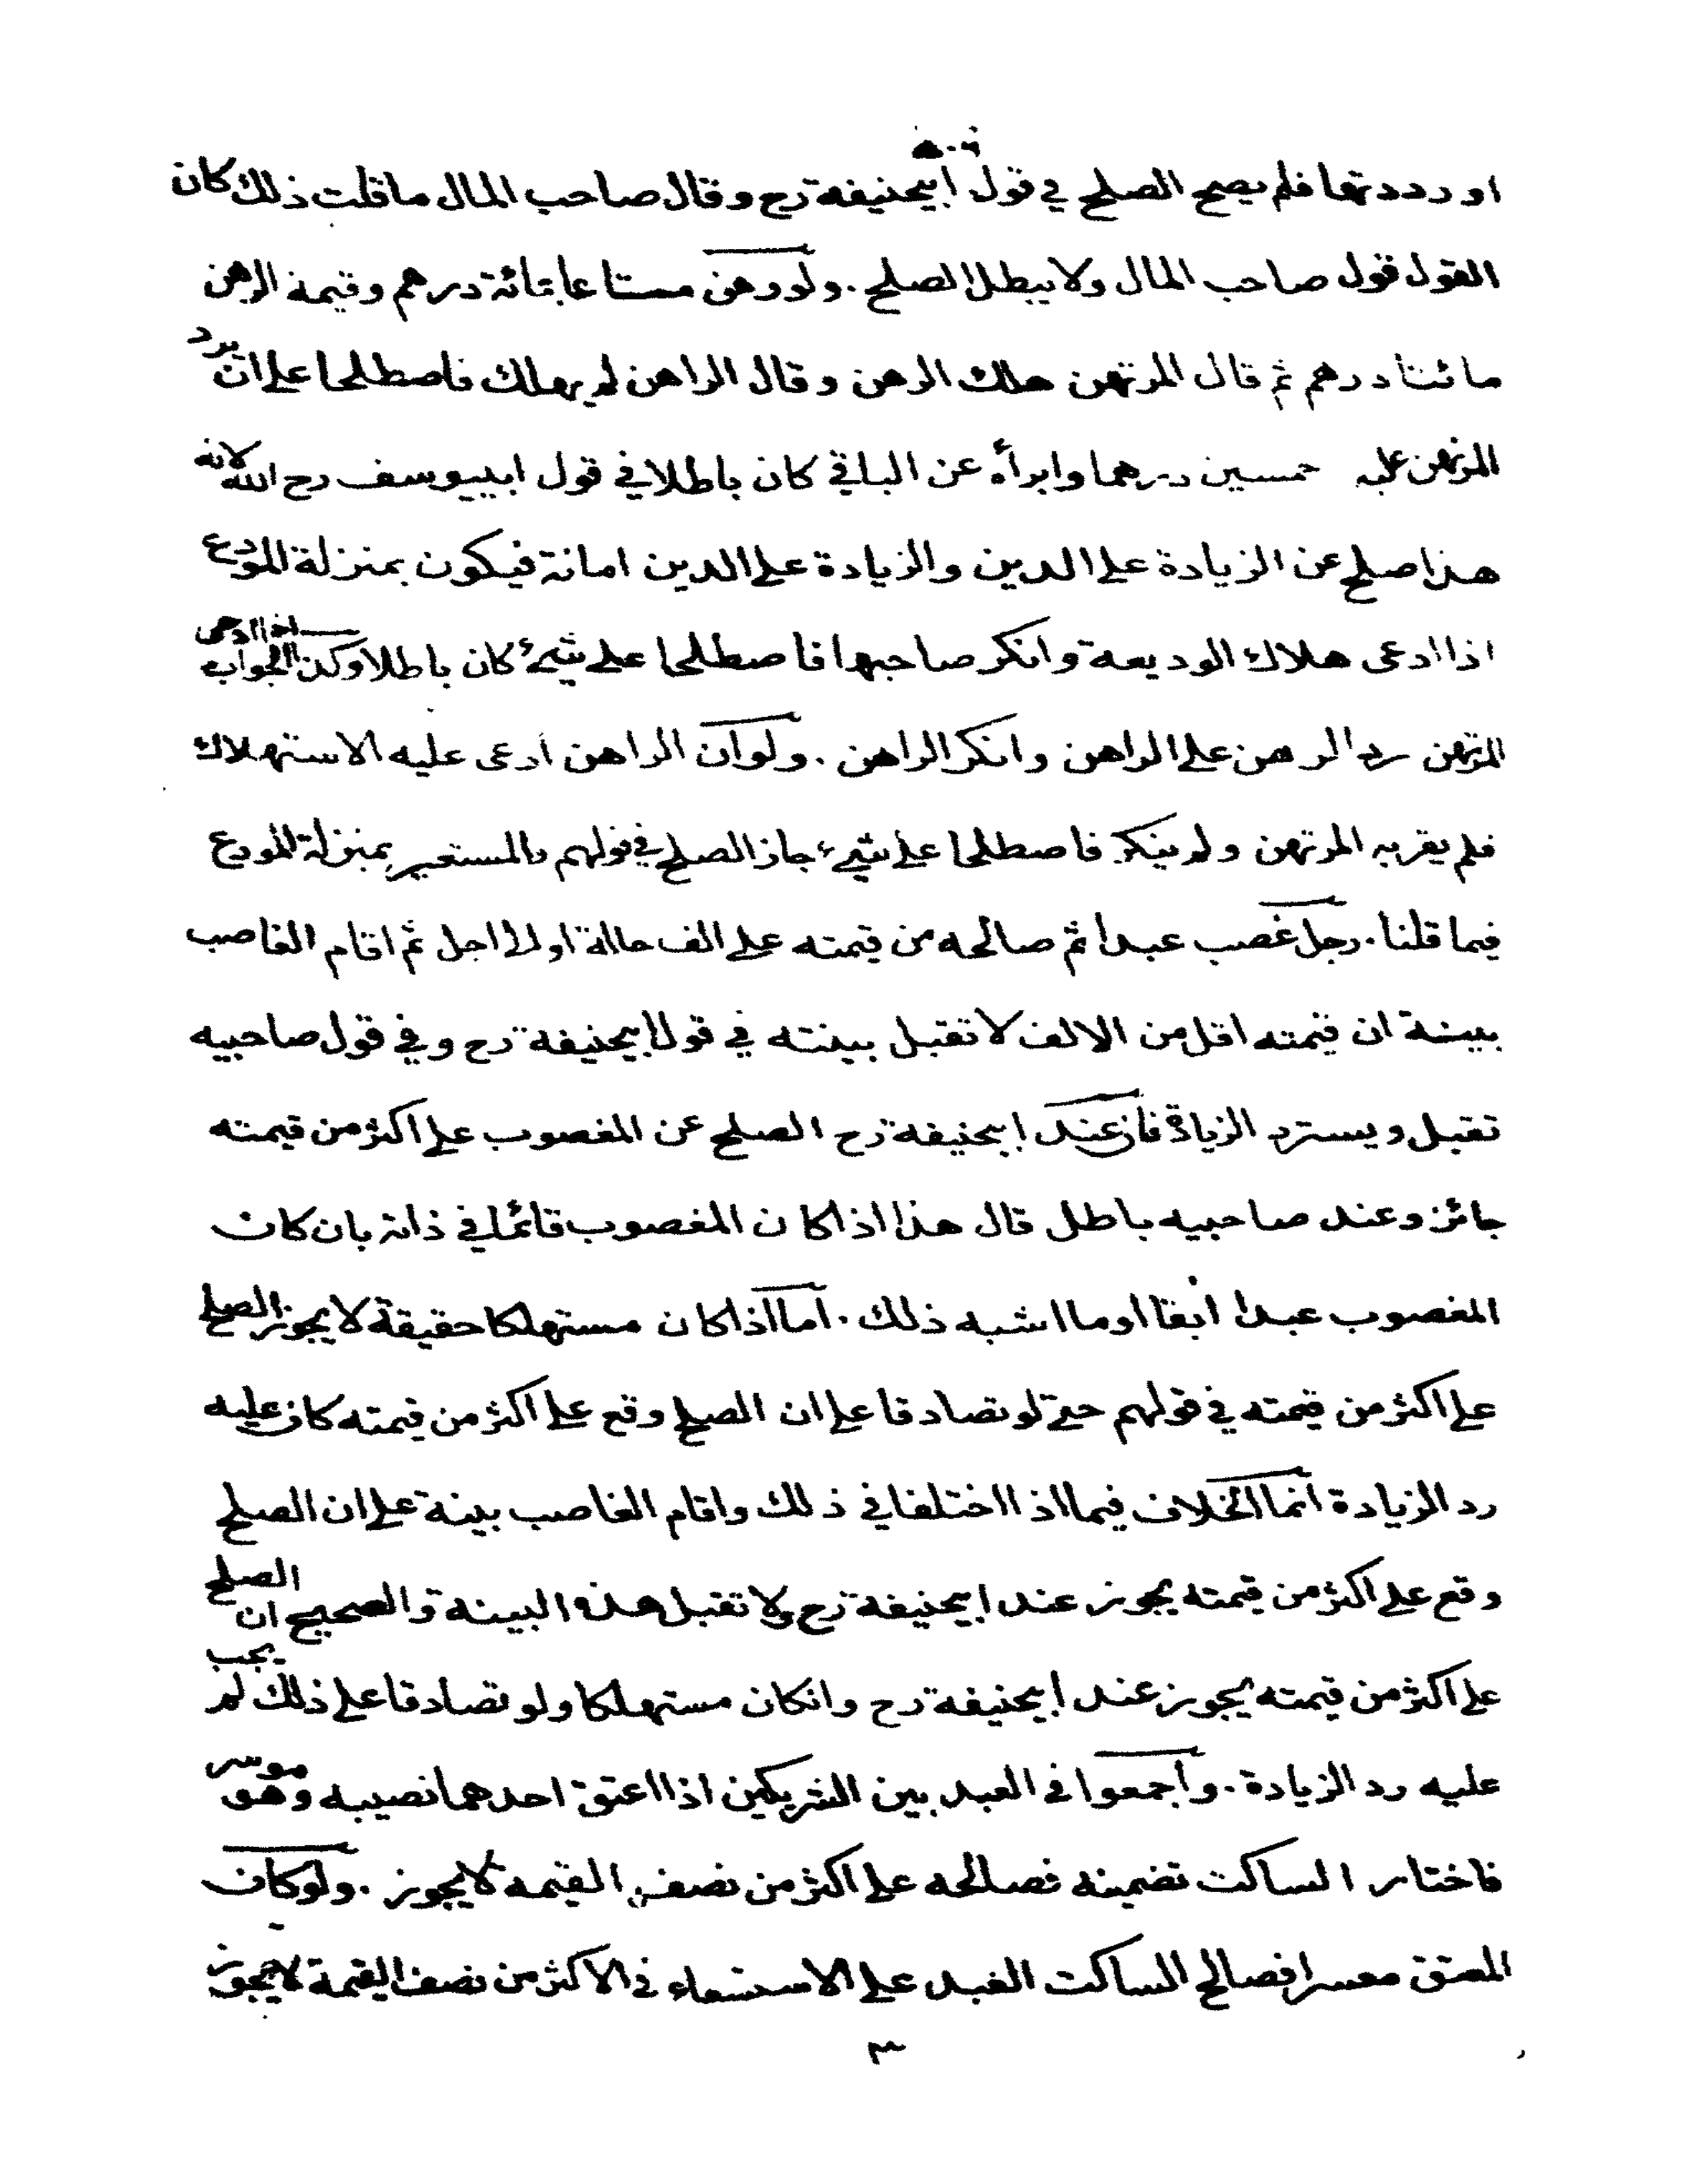 ٥٠٦
او رددتها فلم يصح الصلح في قول ابيحنيفة رح وقال صاحب المال ماقلت ذلك كان
القول قول صاحب المال ولا يبطل الصلح . ولو رهن متاعا بمائة درهم وقيمة الرهن
مائتا درهم ثم قال المرتهن هلك الرهن وقال الراهن لم يهلك فاصطلحا على ان يرد
المرتهن عليه خمسين درهما وابرأه عن الباقي كان باطلا في قول ابييوسف رح الله لانه
هذا صلح عن الزيادة على الدين والزيادة على الدين امانة فيكون بمنزلة المودع
اذا ادعى هلاك الوديعة وانكر صاحبها فاصطلحا على شيء كان باطلا وكذا الجواب اذا ادعى
المرتهن رد الرهن على الراهن وانكر الراهن . ولو ان الراهن ادعى عليه الاستهلاك
فلم يقر به المرتهن ولم ينكر فاصطلحا على شيء جاز الصلح في قولهم والمستعير بمنزلة المودع
فيما قلنا . رجل غصب عبدا ثم صالحه من قيمته على الف حالة او الى اجل ثم اقام الغاصب
بينة ان قيمته اقل من الالف لا تقبل بينته في قول ابيحنيفة رح وفي قول صاحبيه
تقبل ويسترد الزيادة فان عند ابيحنيفة رح الصلح عن المغصوب على اكثر من قيمته
جائز وعند صاحبيه باطل قال هذا اذا كان المغصوب قائما في ذاته بان كان
المغصوب عبدا ابقا او ما اشبه ذلك . اما اذا كان مستهلكا حقيقة لا يجوز الصلح
على اكثر من قيمته في قولهم حتى لو تصادقا على ان الصلح وقع على اكثر من قيمته كان عليه
رد الزيادة انما الخلاف فيما اذا اختلفا في ذلك واقام الغاصب بينة على ان الصلح
وقع على اكثر من قيمته يجوز عند ابيحنيفة رح ولا تقبل هذه البينة والصحيح ان الصلح
على اكثر من قيمته يجوز عند ابيحنيفة رح وانكان مستهلكا ولو تصادقا على ذلك لم يجب
عليه رد الزيادة . واجمعوا في العبد بين الشريكين اذا اعتق احدهما نصيبه وهو موسر
فاختار الساكت تضمينه فصالحه على اكثر من نصف القيمة لا يجوز . ولو كان
المعتق معسرا فصالح الساكت العبد على الاستسعاء في الاكثر من نصف القيمة لا يجوز
٣